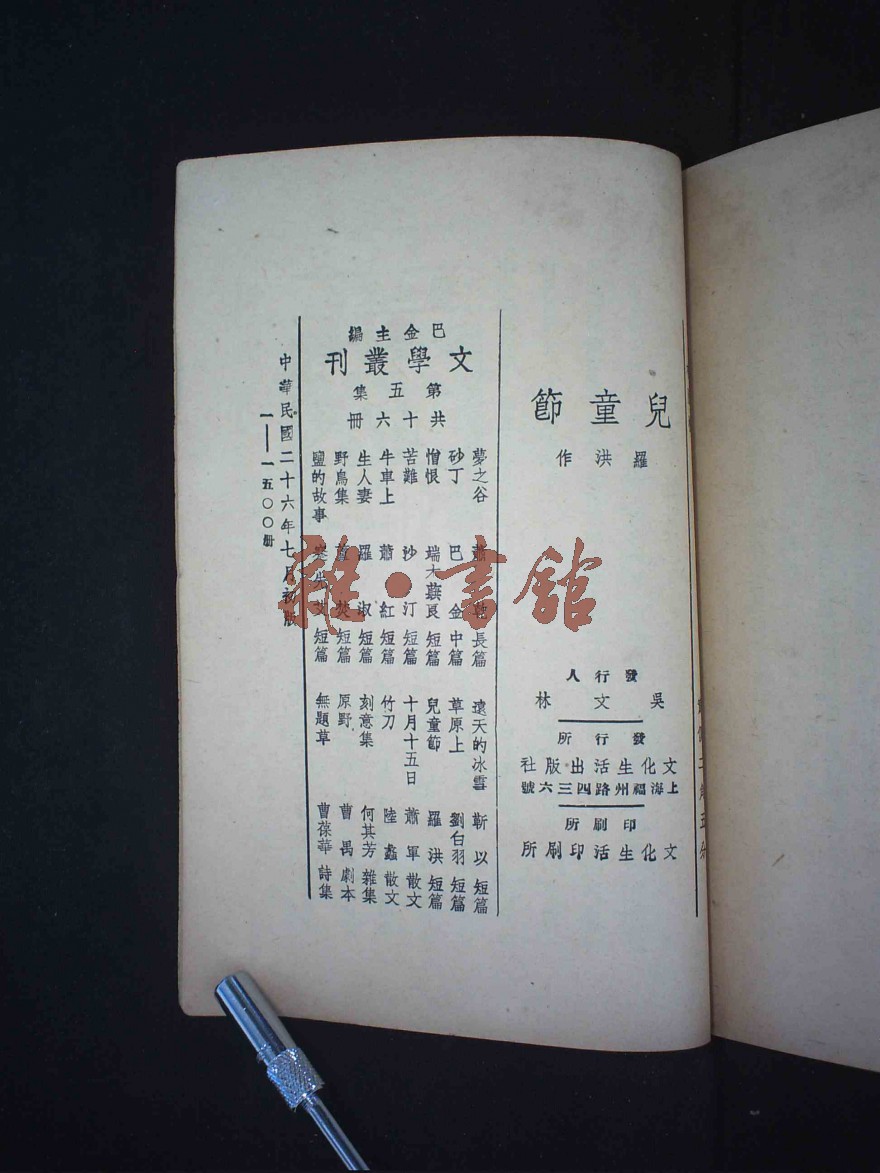 兒童節
羅洪作
發行人
吳文林
發行所
文化生活出版社
上海福州路四三六號
印刷所
文化生活印刷所
巴金主編
文學叢刊
第五集
共十六冊
夢之谷 蕭乾 長篇
砂丁 巴金 中篇
憎恨 端木蕻良 短篇
苦難 沙汀 短篇
牛車上 蕭紅 短篇
生人妻 羅淑 短篇
野鳥集 蘆焚 短篇
鹽的故事 蹇先艾 短篇
遠天的冰雪 靳以 短篇
草原上 劉白羽 短篇
兒童節 羅洪 短篇
十月十五日 蕭軍 散文
竹刀 陸蠡 散文
刻意集 何其芳 雜集
原野 曹禺 劇本
無題草 曹葆華 詩集
中華民國二十六年七月初版
一——一五〇〇册
雜·書館